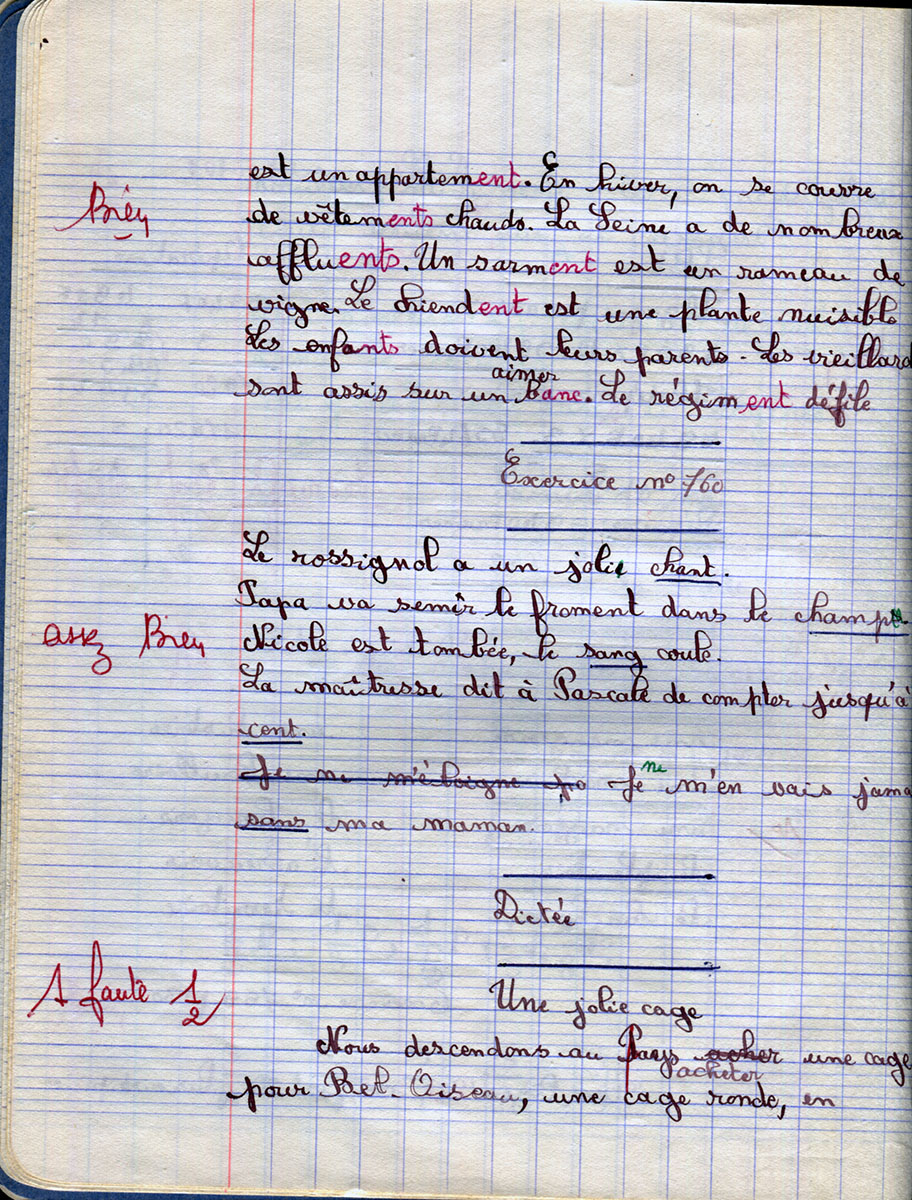 est un appartement. En hiver, on se couvre
Bien
de vêtements chauds. La Seine a de nombreux
affluents. Un sarment est un rameau de
vigne. Le chiendent est une plante nuisible
Les enfants doivent leurs parents. Les vieillard
aimer
sont assis sur un banc. Le régiment défile
Exercice nº 160
Le rossignol a un joli chant.
Papa va semir le froment dans le champ
assez Bien
Nicole est tombée, le sang coule.
La maîtresse dit à Pascale de compter jusqu'à
cent.
Je ne m'éloigne pa Je ne m'en vais jama
sans ma maman.
Dictée
1 faute 1/2
Une jolie cage
Nous descendons au Pays acher une cage
acheter
pour Bel-Oiseau, une cage ronde, en